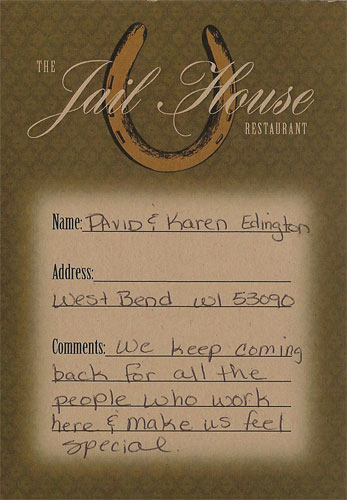 THE
Jail House
RESTAURANT
Name: DAVID & Karen Edington
Address:
West Bend WI 53090
Comments: We keep coming
back for all the
people who work
here & make us feel
special.